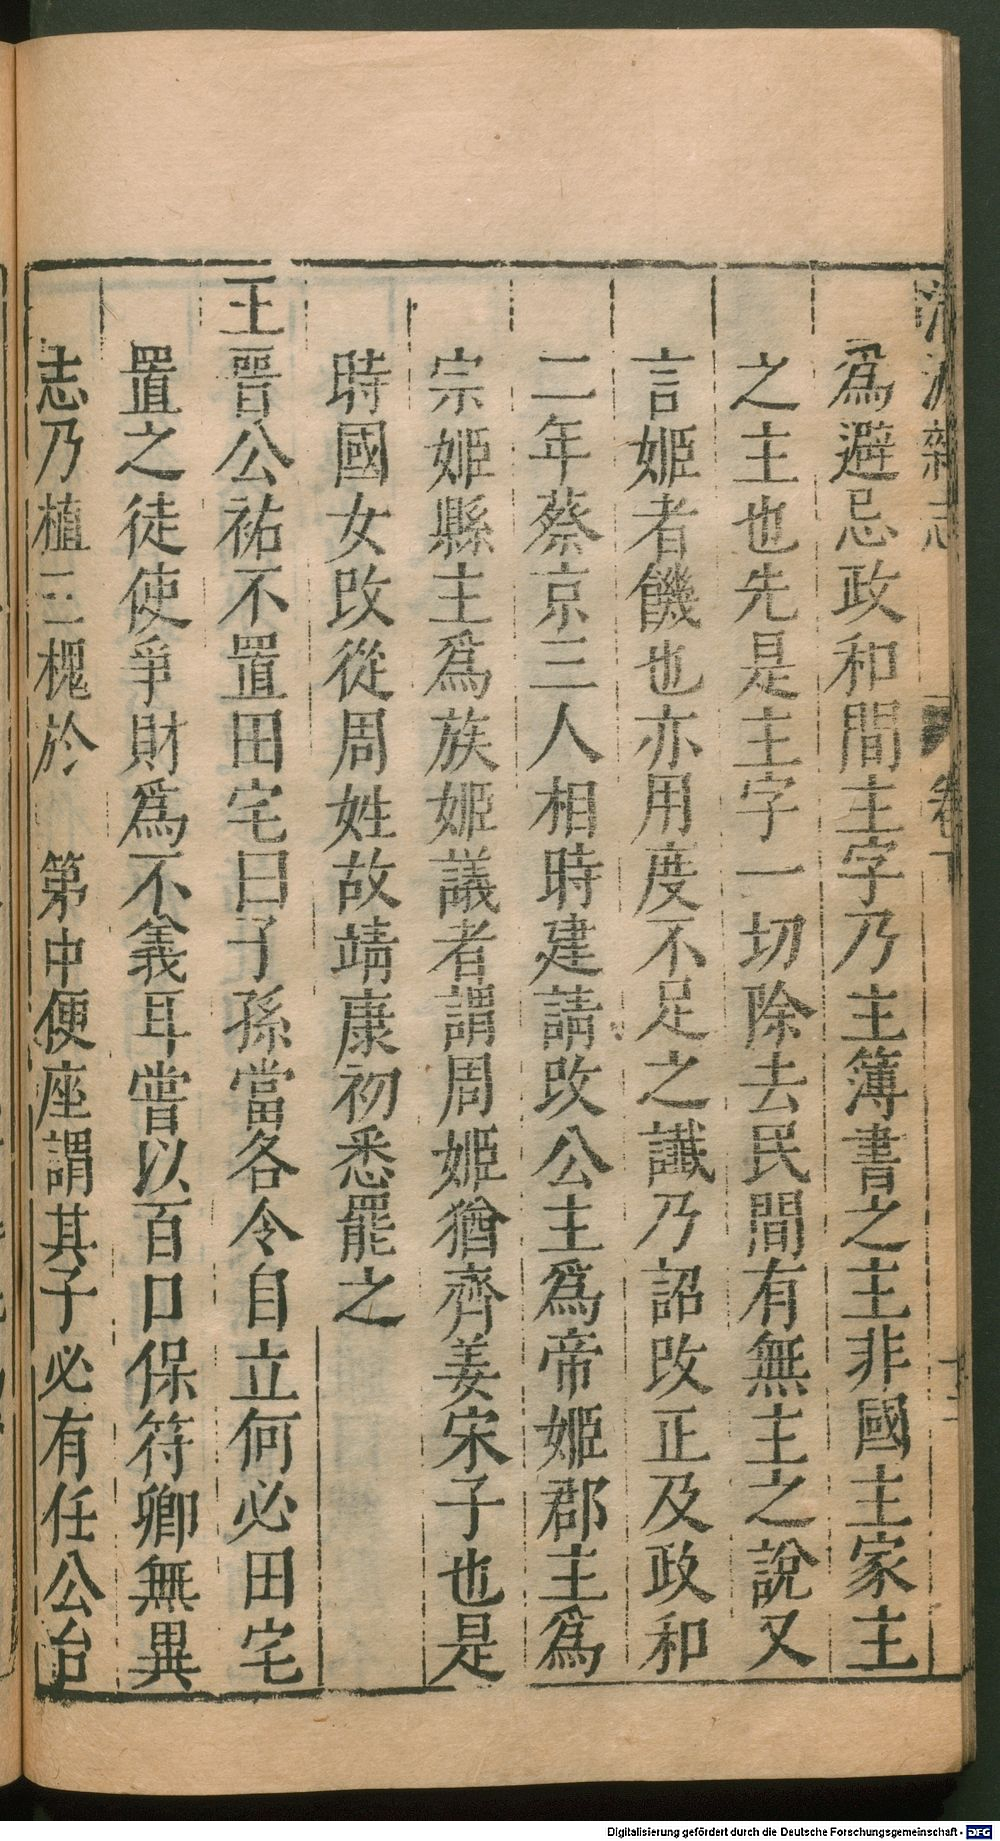 清波雜志 卷下 十二
爲避忌政和間主字乃主簿書之主非國主家主
之主也先是主字一切除去民間有無主之說又
言姬者饑也亦用度不足之讖乃詔改正及政和
二年蔡京三人相時建請改公主爲帝姬郡主爲
宗姬縣主爲族姬議者謂周姬猶齊姜宋子也是
時國女改從周姓故靖康初悉罷之
王晉公祐不置田宅曰子孫當各令自立何必田宅
置之徒使爭財爲不義耳嘗以百口保符卿無異
志乃植三槐於 第中便座謂其子必有任公台
Digitalisierung gefördert durch die Deutsche Forschungsgemeinschaft - DFG